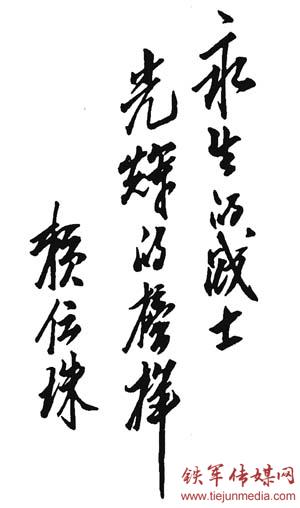 永生的战士
光辉的榜样
赖传珠
铁军传媒网
www.tiejunmedia.com